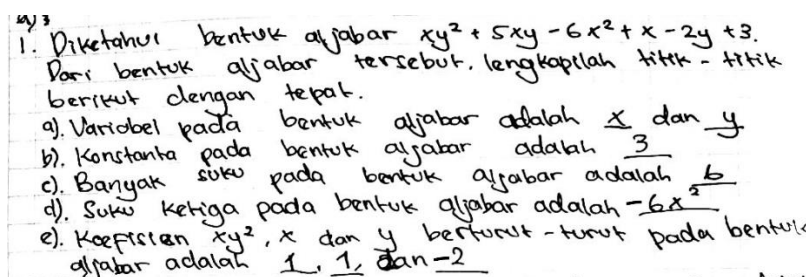 1. Diketahui bentuk aljabar xy² + 5xy - 6x² + x - 2y + 3.
Dari bentuk aljabar tersebut, lengkapilah titik - titik
berikut dengan tepat.
a). Variabel pada bentuk aljabar adalah x dan y
b). Konstanta pada bentuk aljabar adalah 3
c). Banyak suku pada bentuk aljabar adalah 6
d). Suku ketiga pada bentuk aljabar adalah -6x²
e). Koefisien xy², x dan y berturut - turut pada bentuk
aljabar adalah 1, 1, dan -2